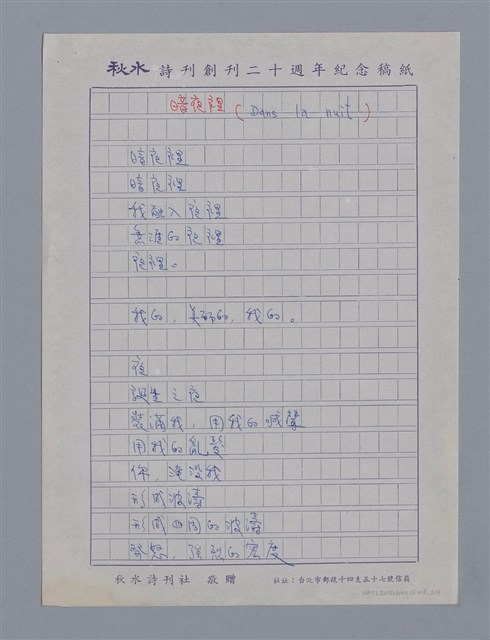 秋水 詩刊創刊二十週年紀念稿紙
暗夜裡 (Dans la nuit)
暗夜裡
暗夜裡
我融入夜裡
無涯的夜裡
夜裡。
我的，美麗的，我的。
夜
誕生之夜
裝滿我，用我的喊聲
用我的亂髮
你，淹沒我
形成波濤
形成四周的波濤
發怒，強烈的密度
秋水詩刊社 敬贈
社址：台北市郵政十四支五十七號信箱